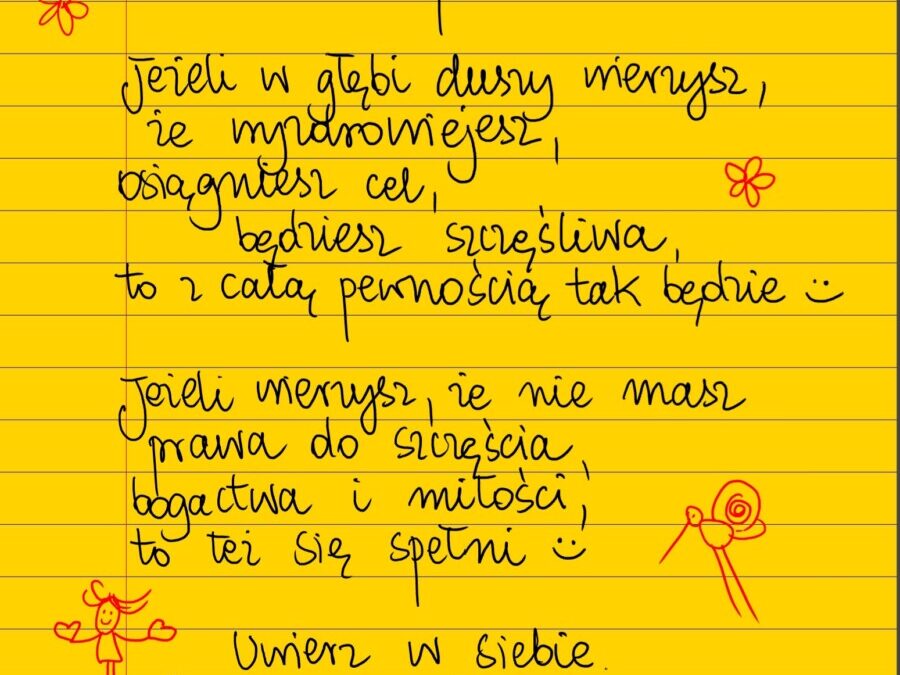 Jeżeli w głębi duszy wierzysz,
że wyzdrowiejesz,
osiągniesz cel,
będziesz szczęśliwa,
to z całą pewnością tak będzie :)
Jeżeli wierzysz, że nie masz
prawa do szczęścia,
bogactwa i miłości,
to też się spełni :)
Uwierz w siebie.